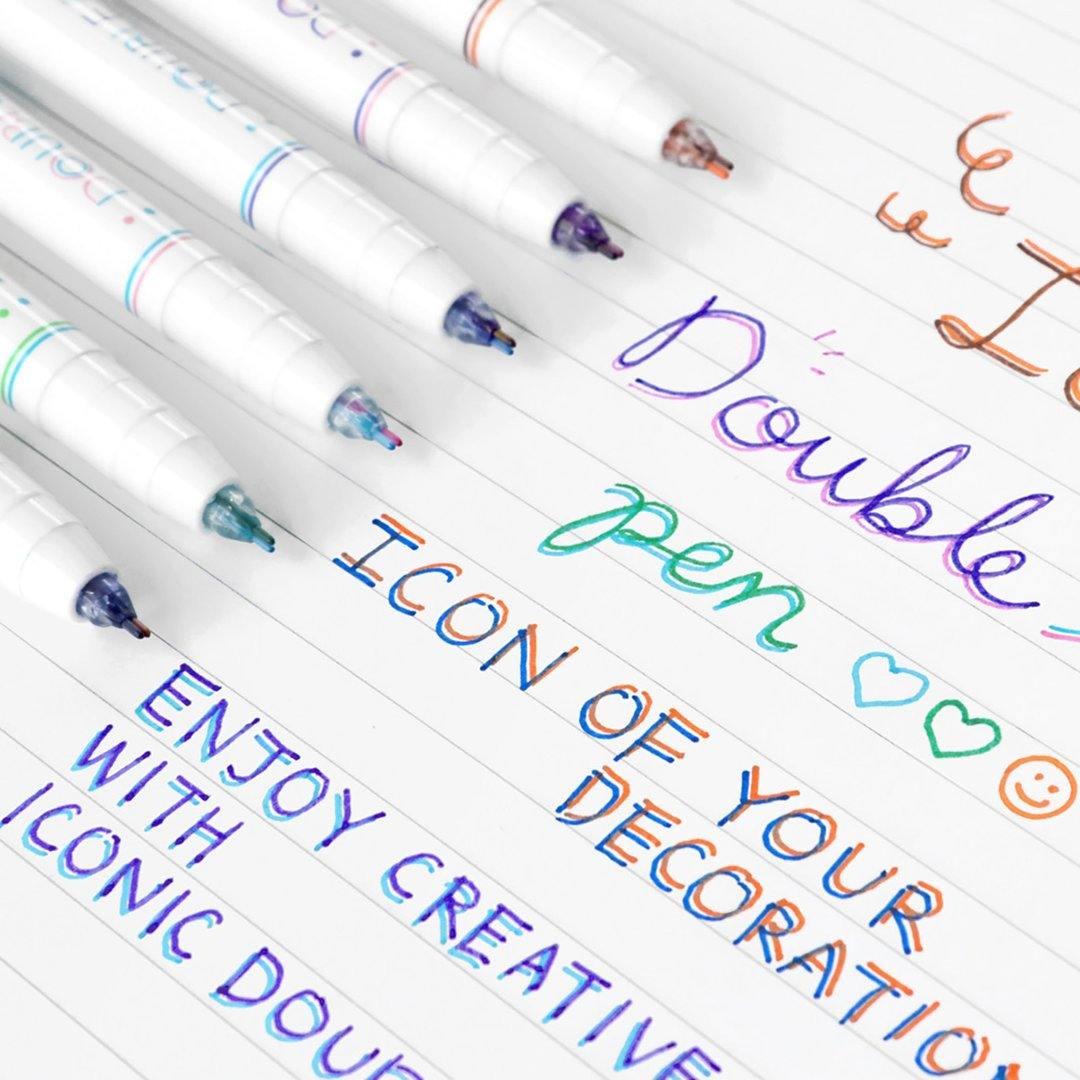 Double
pen
ICON OF YOUR
DECORATION
ENJOY CREATIVE
WITH
ICONIC DOUB